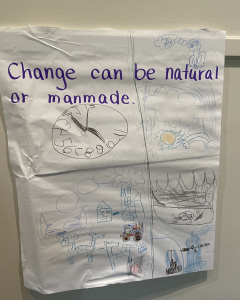 Change can be natural
or manmade.